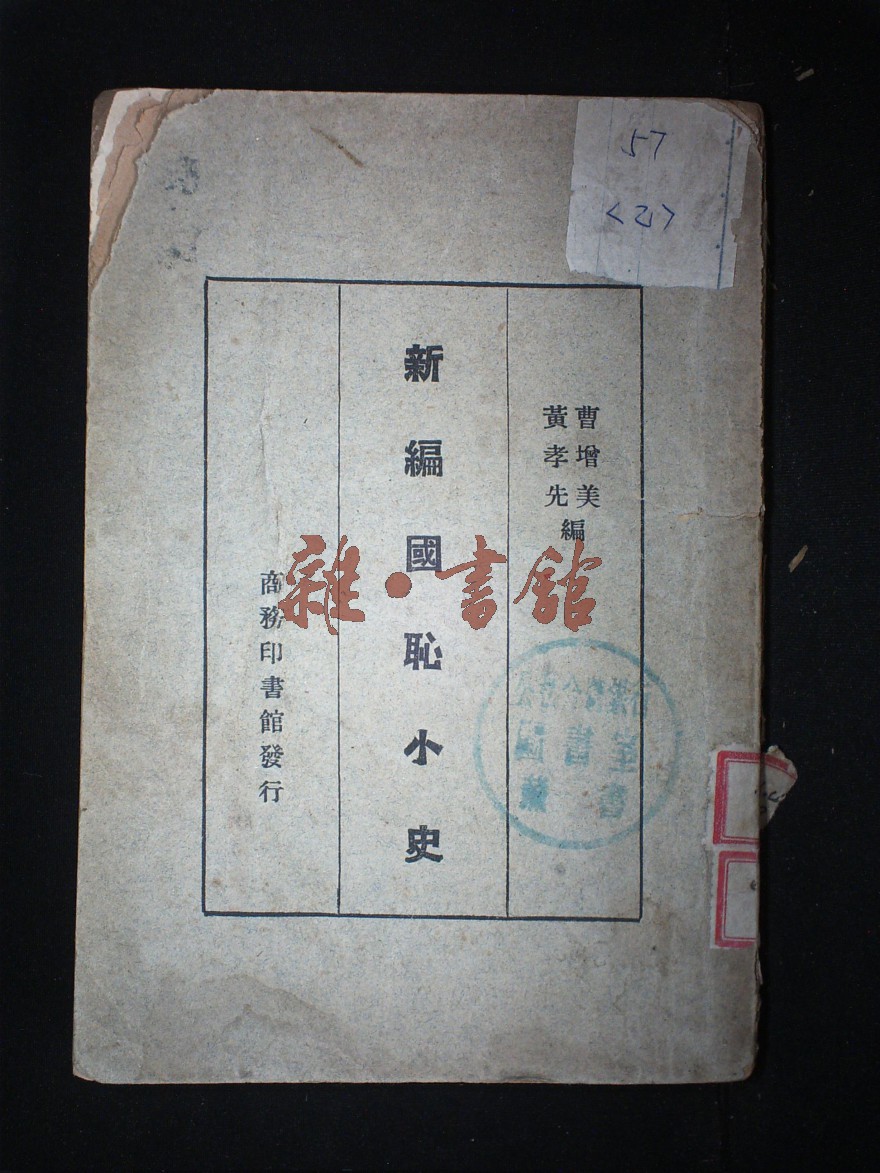 57
<2>
曹增美
黃孝先
編
新編國恥小史
商務印書館發行
雜·書館
圖書室